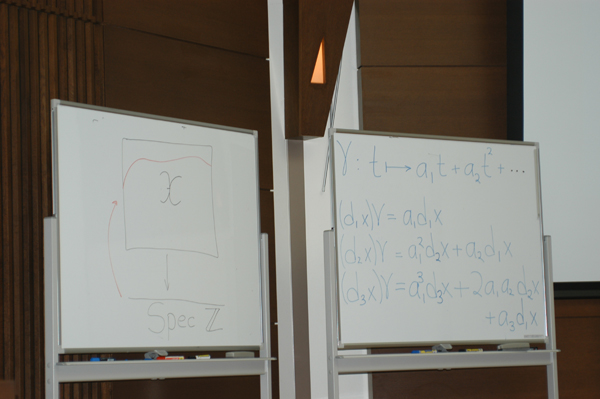 𝔛
Spec ℤ
γ : t ↦ a₁t + a₂t² + ⋯
(d₁x)γ = a₁d₁x
(d₂x)γ = a₁²d₂x + a₂d₁x
(d₃x)γ = a₁³d₃x + 2a₁a₂d₂x
+ a₃d₁x